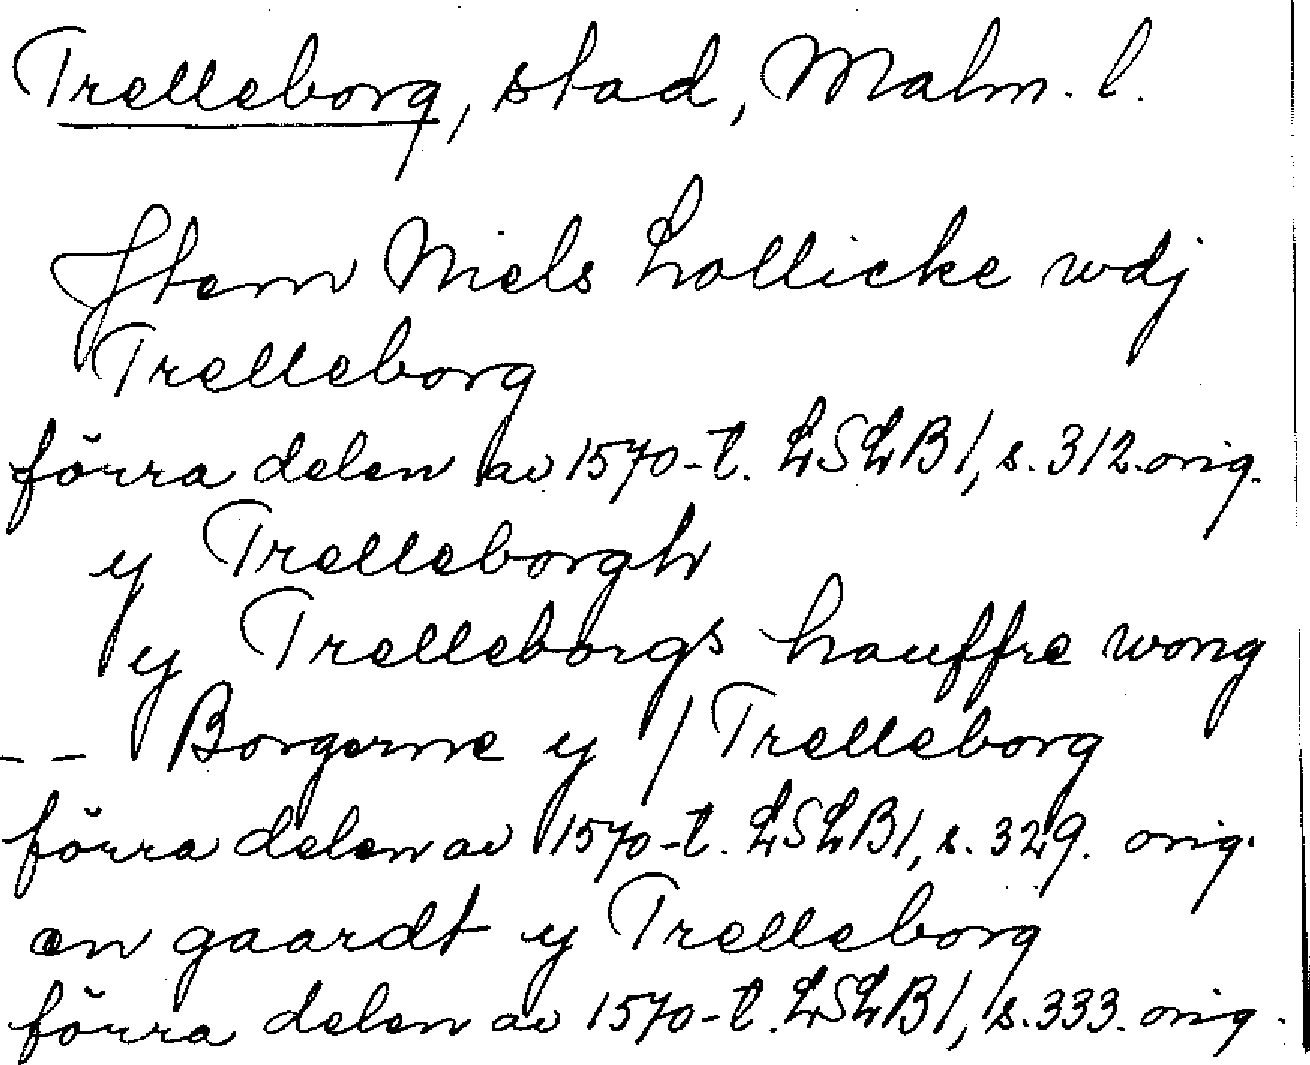 Trelleborg, stad, Malm. l.
Jtem Niels Lollicke wdj
Trelleborg
förra delen av 1570-t. LSLB1, s. 312. orig.
y Trelleborgh
y Trelleborgs hauffre wong
-- Borgerne y / Trelleborg
förra delen av 1570-t. LSLB1, s. 329. orig.
en gaardt y Trelleborg
förra delen av 1570-t. LSLB1, s. 333. orig.